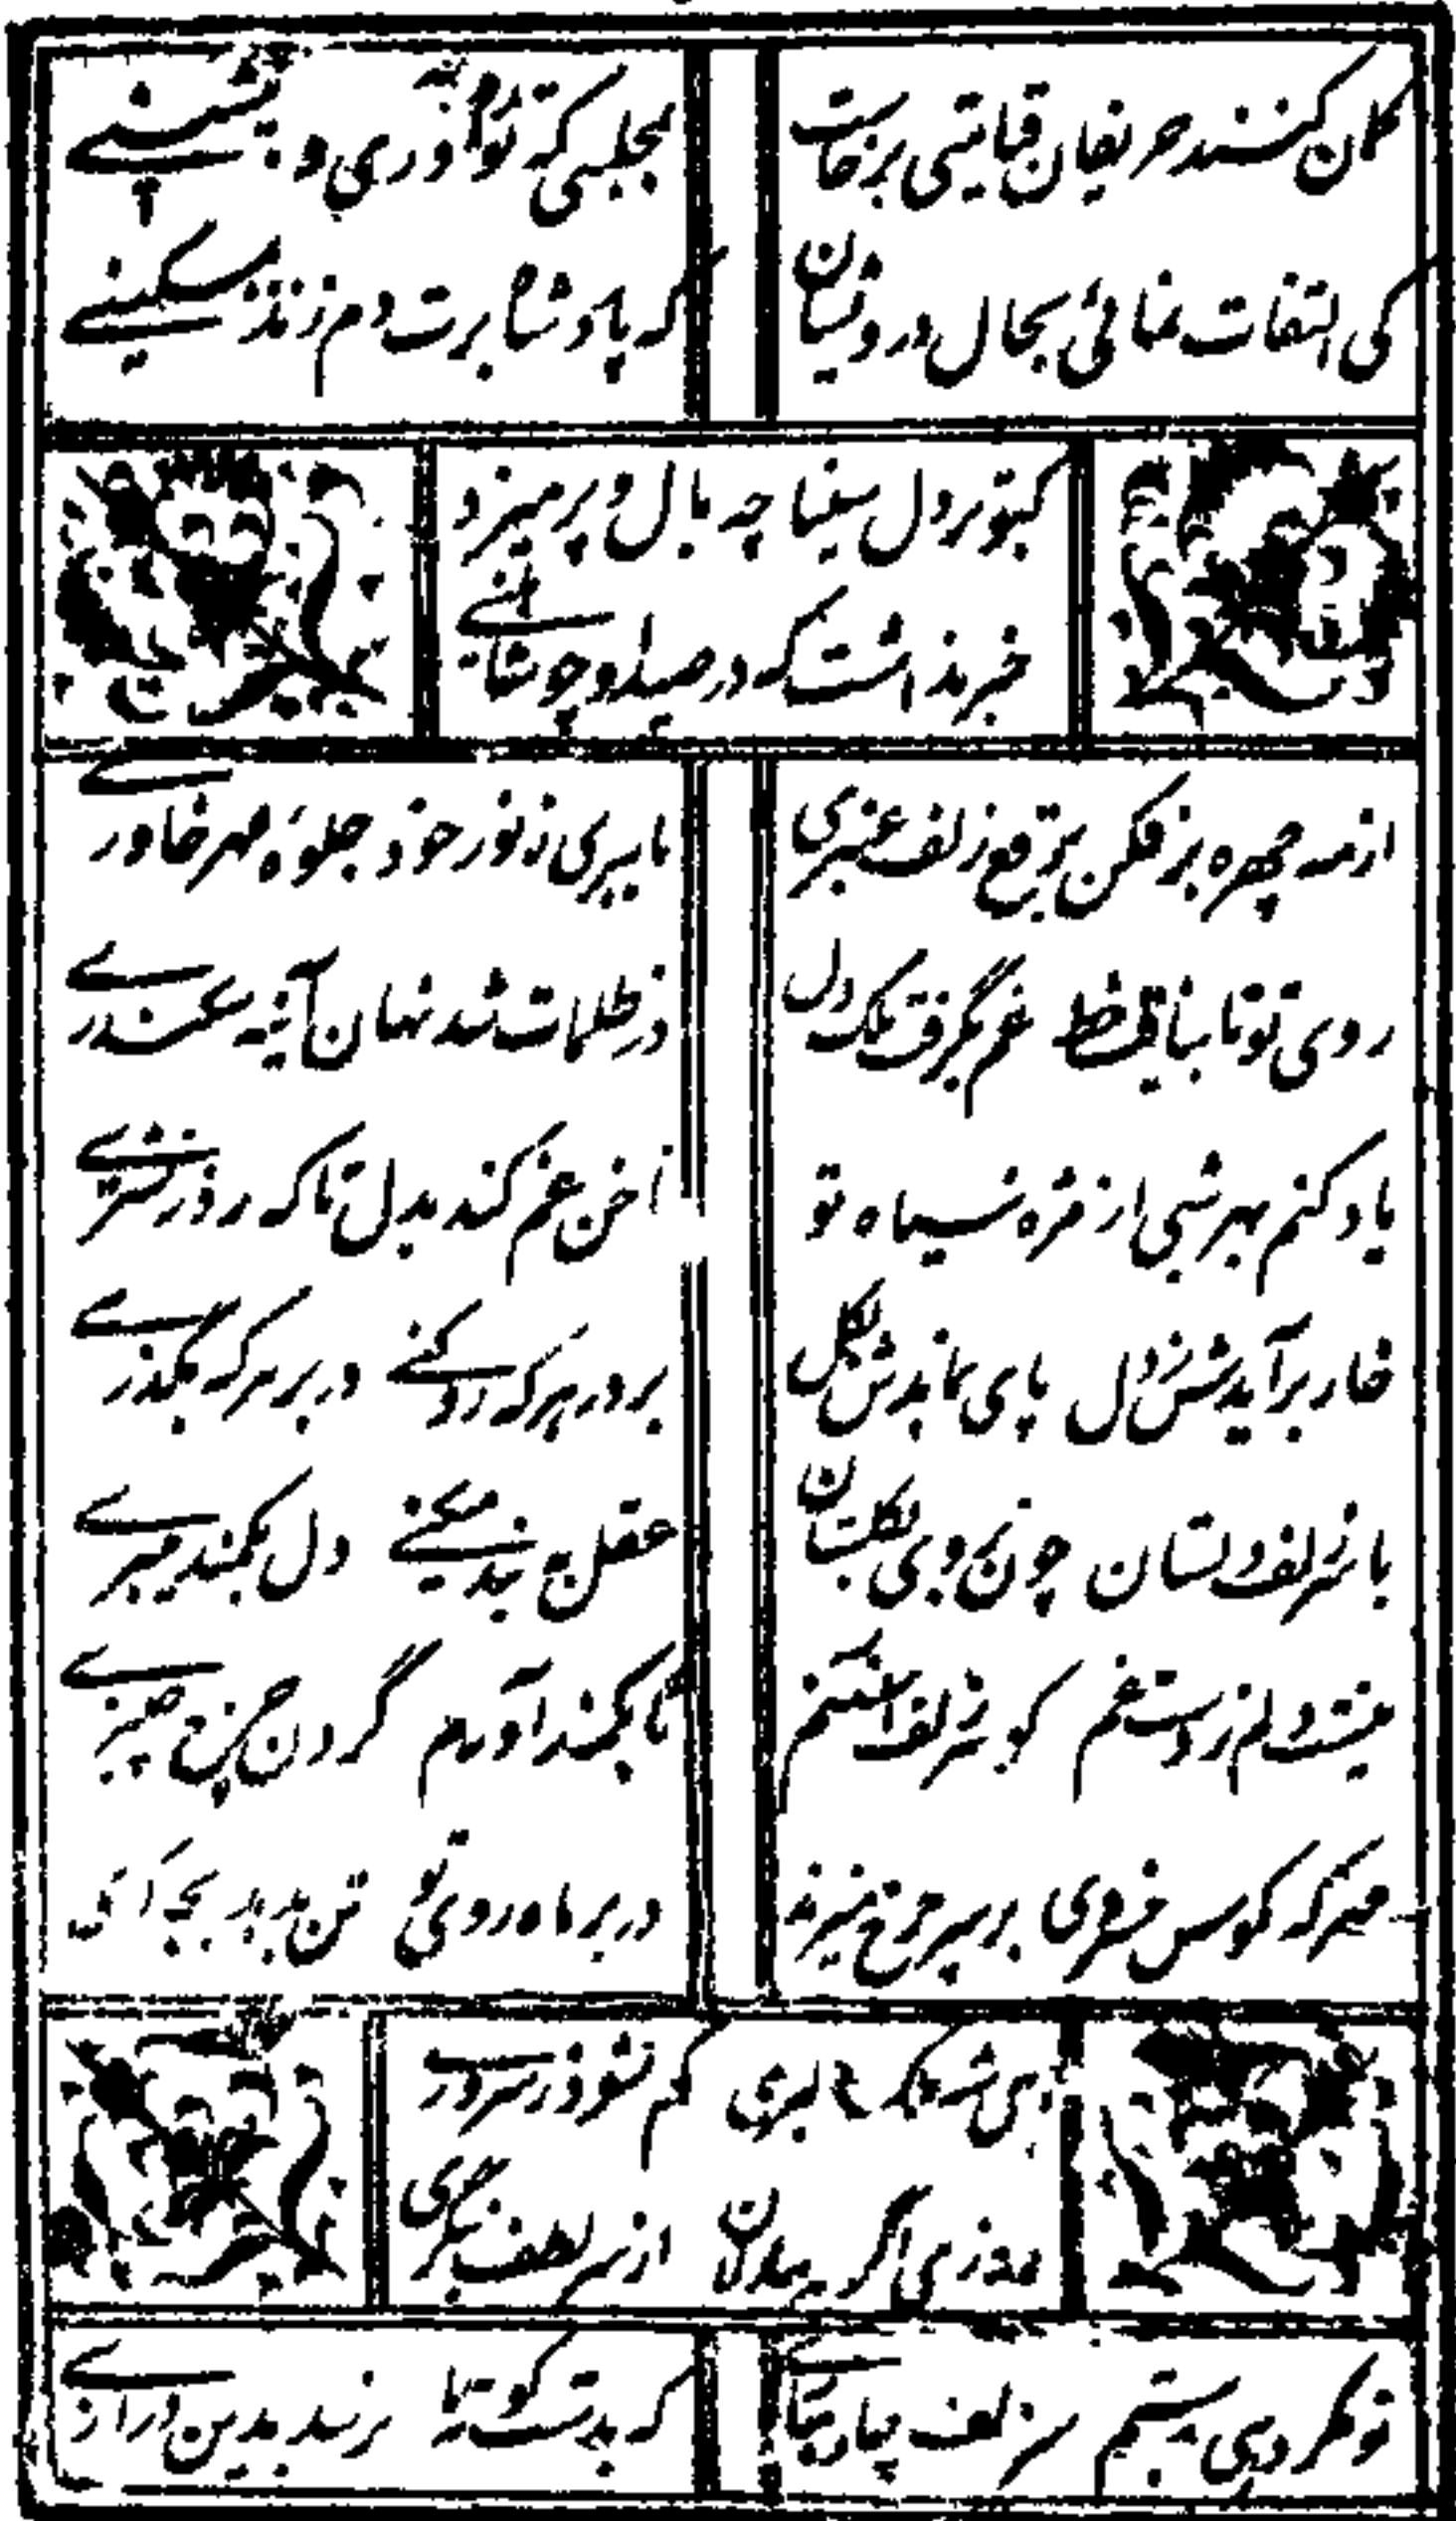 گمان کنند حریفان قیامتی برخاست
بمجلسی که تو آوری و بنشینے
کی التفات نمائی بحال درویشان
که پادشاه برت دم زند ز مسکینے
کبوتر دل سینا چه بال و پر میزد
خبر نداشت که در صید او چو شاہینے
از مه چهره برفکن برقع زلف عنبری
تا ببری ز نور خود جلوۀ مهر خاورے
روی تو تا بنا خط غم بگرفت ملک دل
در ظلمات شد نهان آینه سکندرے
یاد کنم بهر شبی از مژه سیاه تو
ناخن غم کند بدل تا که روز نشترے
خار برآیدش ز دل پای بماندش بگل
بر در هر که رو کنے در بر هر که بگذرے
با سر زلف دلستان چون بروی بگلستان
عقل به بند میکنے دل بکمند میبرے
دلم ز دست غم کو سر زلف
تا بکمند آورم گردن چرخ چنبرے
هر که کوس خرمی بر سپهر چرخ میزند
در بر ماه روی تو تن بدبد بجه
کم نشود ز سرورے
روزی اگر به بیدلان از سر لطف بنگری
تو مگر دهی بدستم سر زلف چار تائے
که بدست کوته ما نرسد بدین درازے